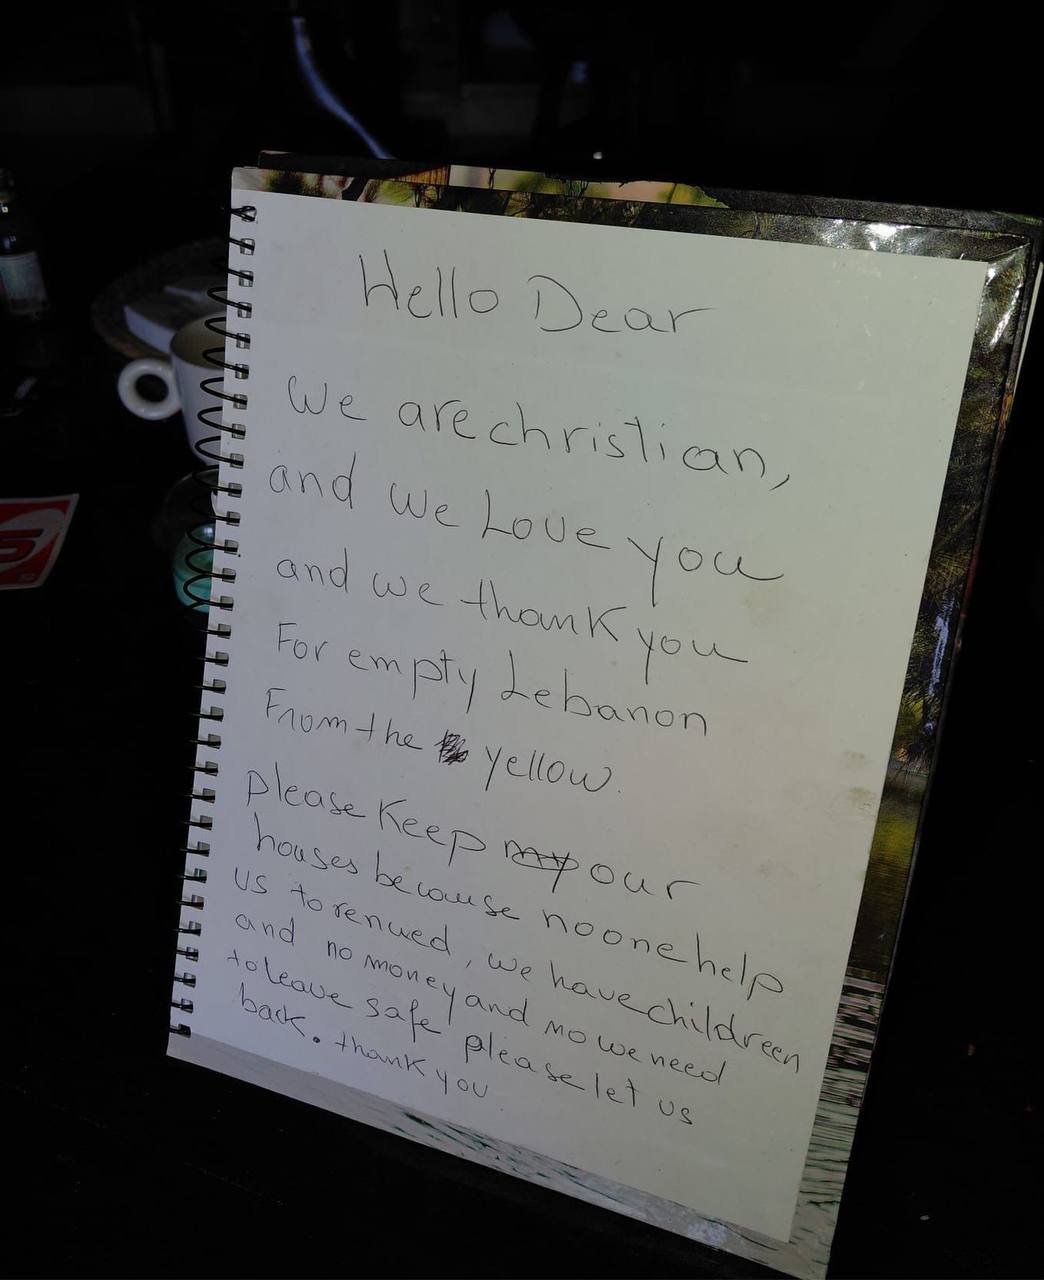 Hello Dear
We are christian,
and we Love you
and we thank you
For empty Lebanon
From the yellow.
please Keep my our
houses becouse no one help
us to renued, we have childreen
and no money and no we need
to leave safe please let us
back. thank you
S